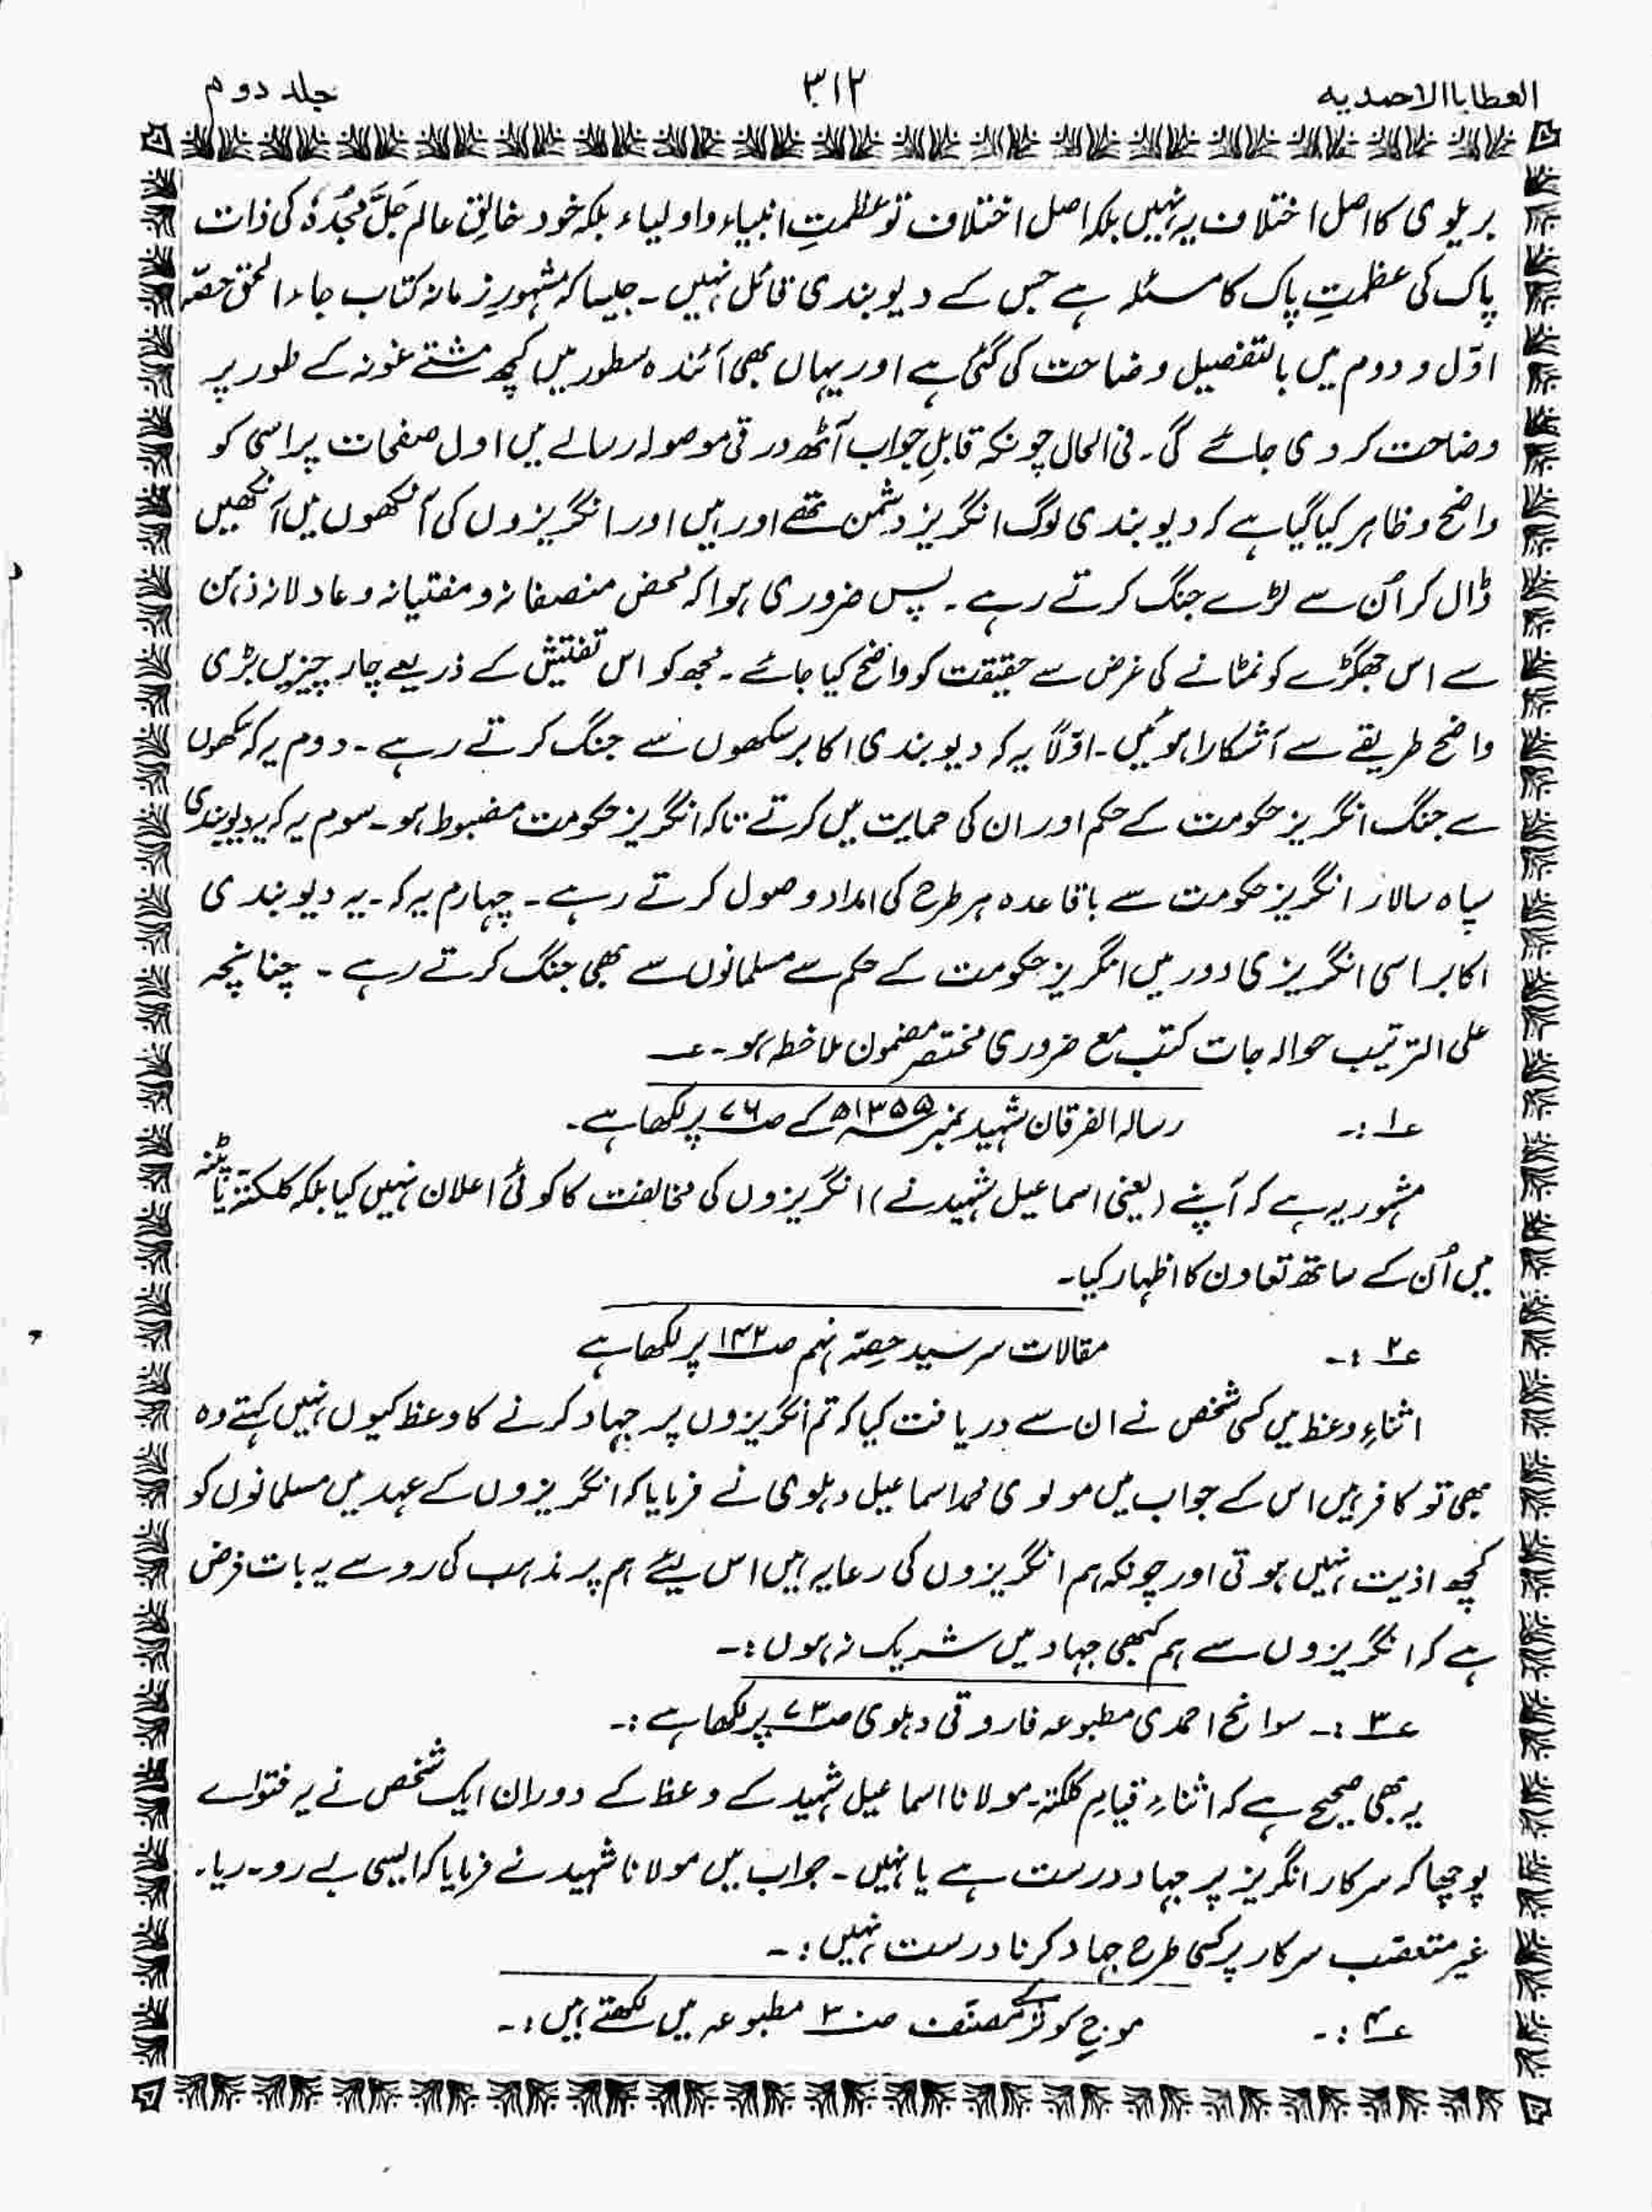 العطایاالاحمدیہ ۳۱۲ جلد دوم
بریلوی کا اصل اختلاف یہ نہیں بلکہ اصل اختلاف تو عظمتِ انبیاء و اولیاء بلکہ خود خالقِ عالم جَلَّ مَجْدُہٗ کی ذات
پاک کی عظمتِ پاک کا مسئلہ ہے جس کے دیوبندی قائل نہیں ۔ جیسا کہ مشہورِ زمانہ کتاب جاء الحق حصّہ
اوّل و دوم میں بالتفصیل وضاحت کی گئی ہے اور یہاں بھی آئندہ سطور میں کچھ مشتے نمونہ کے طور پر
وضاحت کر دی جائے گی ۔ فی الحال چونکہ قابلِ جواب آٹھ ورقی موصولہ رسالے میں اول صفحات پر اسی کو
واضح و ظاہر کیا گیا ہے کہ دیوبندی لوگ انگریز دشمن تھے اور ہیں اور انگریزوں کی آنکھوں میں آنکھیں
ڈال کر اُن سے لڑے جنگ کرتے رہے ۔ پس ضروری ہوا کہ محض منصفانہ و مفتیانہ و عادلانہ ذہن
سے اس جھگڑے کو نمٹانے کی غرض سے حقیقت کو واضح کیا جائے ۔ مجھ کو اس تفتیش کے ذریعے چار چیزیں بڑی
واضح طریقے سے آشکارا ہوئیں ۔ اوّلاً یہ کہ دیوبندی اکابر سکھوں سے جنگ کرتے رہے ۔ دوم یہ کہ سکھوں
سے جنگ انگریز حکومت کے حکم اور ان کی حمایت میں کرتے تاکہ انگریز حکومت مضبوط ہو ۔ سوم یہ کہ یہ دیوبندی
سپاہ سالار انگریز حکومت سے باقاعدہ ہر طرح کی امداد وصول کرتے رہے ۔ چہارم یہ کہ ۔ یہ دیوبندی
اکابر اسی انگریزی دور میں انگریز حکومت کے حکم سے مسلمانوں سے بھی جنگ کرتے رہے ۔ چنانچہ
علی الترتیب حوالہ جات کتب مع ضروری مختصر مضمون ملاحظہ ہو ۔
؏۱ :۔ رسالہ الفرقان شہید نمبر ۱۳۵۵ھ کے صـ۷۶ پر لکھا ہے ۔
مشہور یہ ہے کہ آپنے (یعنی اسماعیل شہید نے) انگریزوں کی مخالفت کا کوئی اعلان نہیں کیا بلکہ کلکتہ یا پٹنہ
میں اُن کے ساتھ تعاون کا اظہار کیا ۔
؏۲ :۔ مقالات سرسید حصّہ نہم صـ۱۴۲ پر لکھا ہے
اثناءِ وعظ میں کسی شخص نے ان سے دریافت کیا کہ تم انگریزوں پر جہاد کرنے کا وعظ کیوں نہیں کہتے وہ
بھی تو کافر ہیں اس کے جواب میں مولوی محمد اسماعیل دہلوی نے فرمایا کہ انگریزوں کے عہد میں مسلمانوں کو
کچھ اذیت نہیں ہوتی اور چونکہ ہم انگریزوں کی رعایہ ہیں اس لیئے ہم پر مذہب کی رو سے یہ بات فرض
ہے کہ انگریزوں سے ہم کبھی جہاد میں شریک نہ ہوں :۔
؏۳ :۔ سوانح احمدی مطبوعہ فاروقی دہلوی صـ۷۳ پر لکھا ہے :۔
یہ بھی صحیح ہے کہ اثناءِ قیامِ کلکتہ ۔ مولانا اسماعیل شہید کے وعظ کے دوران ایک شخص نے یہ فتوٰے
پوچھا کہ سرکار انگریز پر جہاد درست ہے یا نہیں ۔ جواب میں مولانا شہید نے فرمایا کہ ایسی بے رو ۔ ریا ۔
غیر متعصّب سرکار پر کسی طرح جہاد کرنا درست نہیں :۔
؏۴ :۔ موج کوثر کے مصنّف صـ۳ مطبوعہ میں لکھتے ہیں :۔